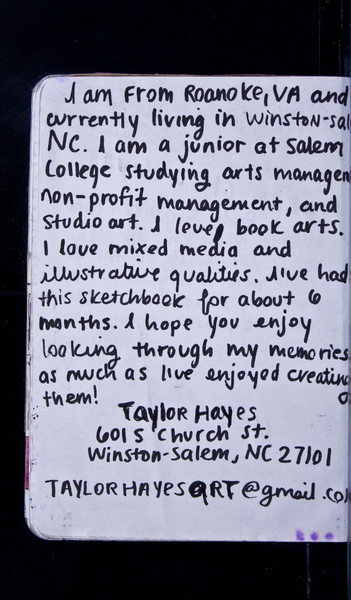 I am from Roanoke, VA and
currently living in Winston-Sal
NC. I am a junior at Salem
College studying arts managen
non-profit management, and
studio art. I love book arts.
I love mixed media and
illustrative qualities. I've had
this sketchbook for about 6
months. I hope you enjoy
looking through my memories
as much as I've enjoyed creating
them!
Taylor Hayes
601 S Church St.
Winston-Salem, NC 27101
TAYLORHAYESART@gmail.com